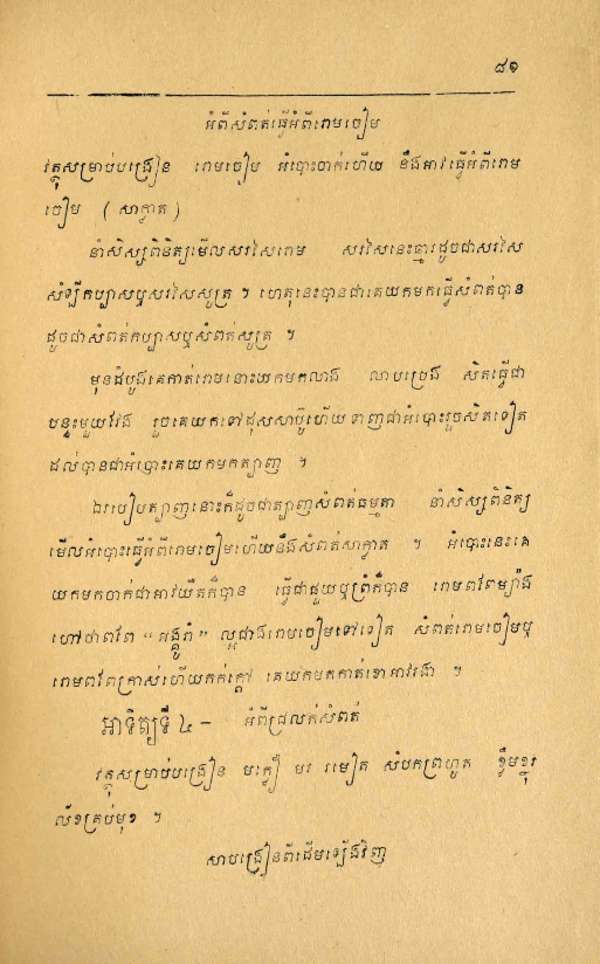 ៨១
អំពីសំពត់ធ្វើអំពីរោមចៀម
វត្ថុសម្រាប់បង្រៀន រោមចៀម អំបោះចាក់ហើយ នឹងអាវធ្វើអំពីរោម
ចៀម ( សាក្លាត )
នាំសិស្សពិនិត្យមើលសរសៃរោម សរសៃនេះឆ្មារដូចជាសរសៃ
សំឡីកប្បាសឬសរសៃសូត្រ ។ ហេតុនេះបានជាគេយកមកធ្វើសំពត់បាន
ដូចជាសំពត់កប្បាសឬសំពត់សូត្រ ។
មុនដំបូងគេកាត់រោមនោះយកមកលាង លាបប្រេង សិតធ្វើជា
បន្ទះមួយវែង រួចគេយកទៅដុសសាប៊ូហើយទាញជាអំបោះរួចសិតទៀត
ដល់បានជាអំបោះគេយកមកត្បាញ ។
ឯរបៀបត្បាញនោះក៏ដូចជាត្បាញសំពត់ធម្មតា នាំសិស្សពិនិត្យ
មើលអំបោះធ្វើអំពីរោមចៀមហើយនឹងសំពត់សាក្លាត ។ អំបោះនេះគេ
យកមកចាក់ជាអាវយឺតក៏បាន ធ្វើជាផួយឬព្រំក៏បាន រោមពពែម្យ៉ាង
ហៅថាពពែ “អង្គូរ៉ា” ល្អជាងរោមចៀមទៅទៀត សំពត់រោមចៀមឬ
រោមពពែក្រាស់ហើយកក់ក្ដៅ គេយកមកកាត់ខោអាវរងា ។
អាទិត្យទី ៤ – អំពីជ្រលក់សំពត់
វត្ថុសម្រាប់បង្រៀន មក្លឿ មរ រមៀត សំបកព្រហូត ខ្លឹមខ្នុរ
ល័ខគ្រប់មុខ ។
សាបង្រៀនពីដើមឡើងវិញ